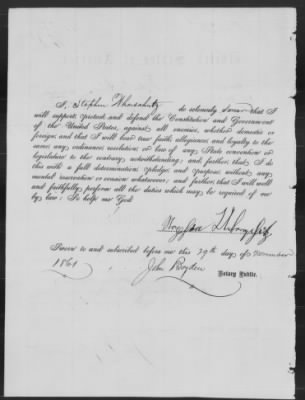 I, Stephen do solemnly swear that I
will support, protect and defend the Constitution and Government
of the United States, against all enemies, whether domestic or
foreign; and that I will bear true faith, allegiance and loyalty to the
same, any ordinance, resolution or law of any State convention or
legislature to the contrary, notwithstanding; and further, that I do
this with a full determination, pledge and purpose, without any
mental reservation or evasion whatsoever; and further, that I will well
and faithfully perform all the duties which may be required of me
by law: So help me God
Sworn to and subscribed before me this 29th day of November
1861
John Boyden
Notary Public.